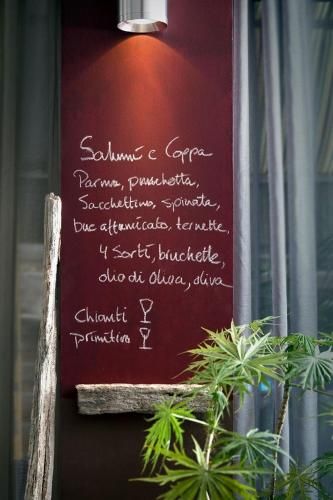 Salumi e Coppa
Parma, pruschetta,
Sacchettino, spinata,
bue affumicato, ternette,
4 Sorti, bruchette,
olio di Oliva, oliva
Chianti
primitivo